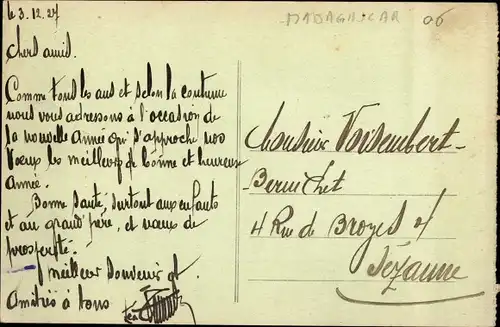 le 3.12.27
MADAGASCAR
06
Chers amis.
Comme tous les ans et selon la coutume
nous vous adressons à l'occasion de
la nouvelle année qui s'approche nos
Voeux les meilleurs de bonne et heureuse
année.
Bonne santé, surtout aux enfants
et au grand'père, et vœux de
prosperité.
Meilleur souvenir et
Amitiés à tous
Monsieur Voisembert-
Bernichet
4 Rue de Broyes
Sézanne